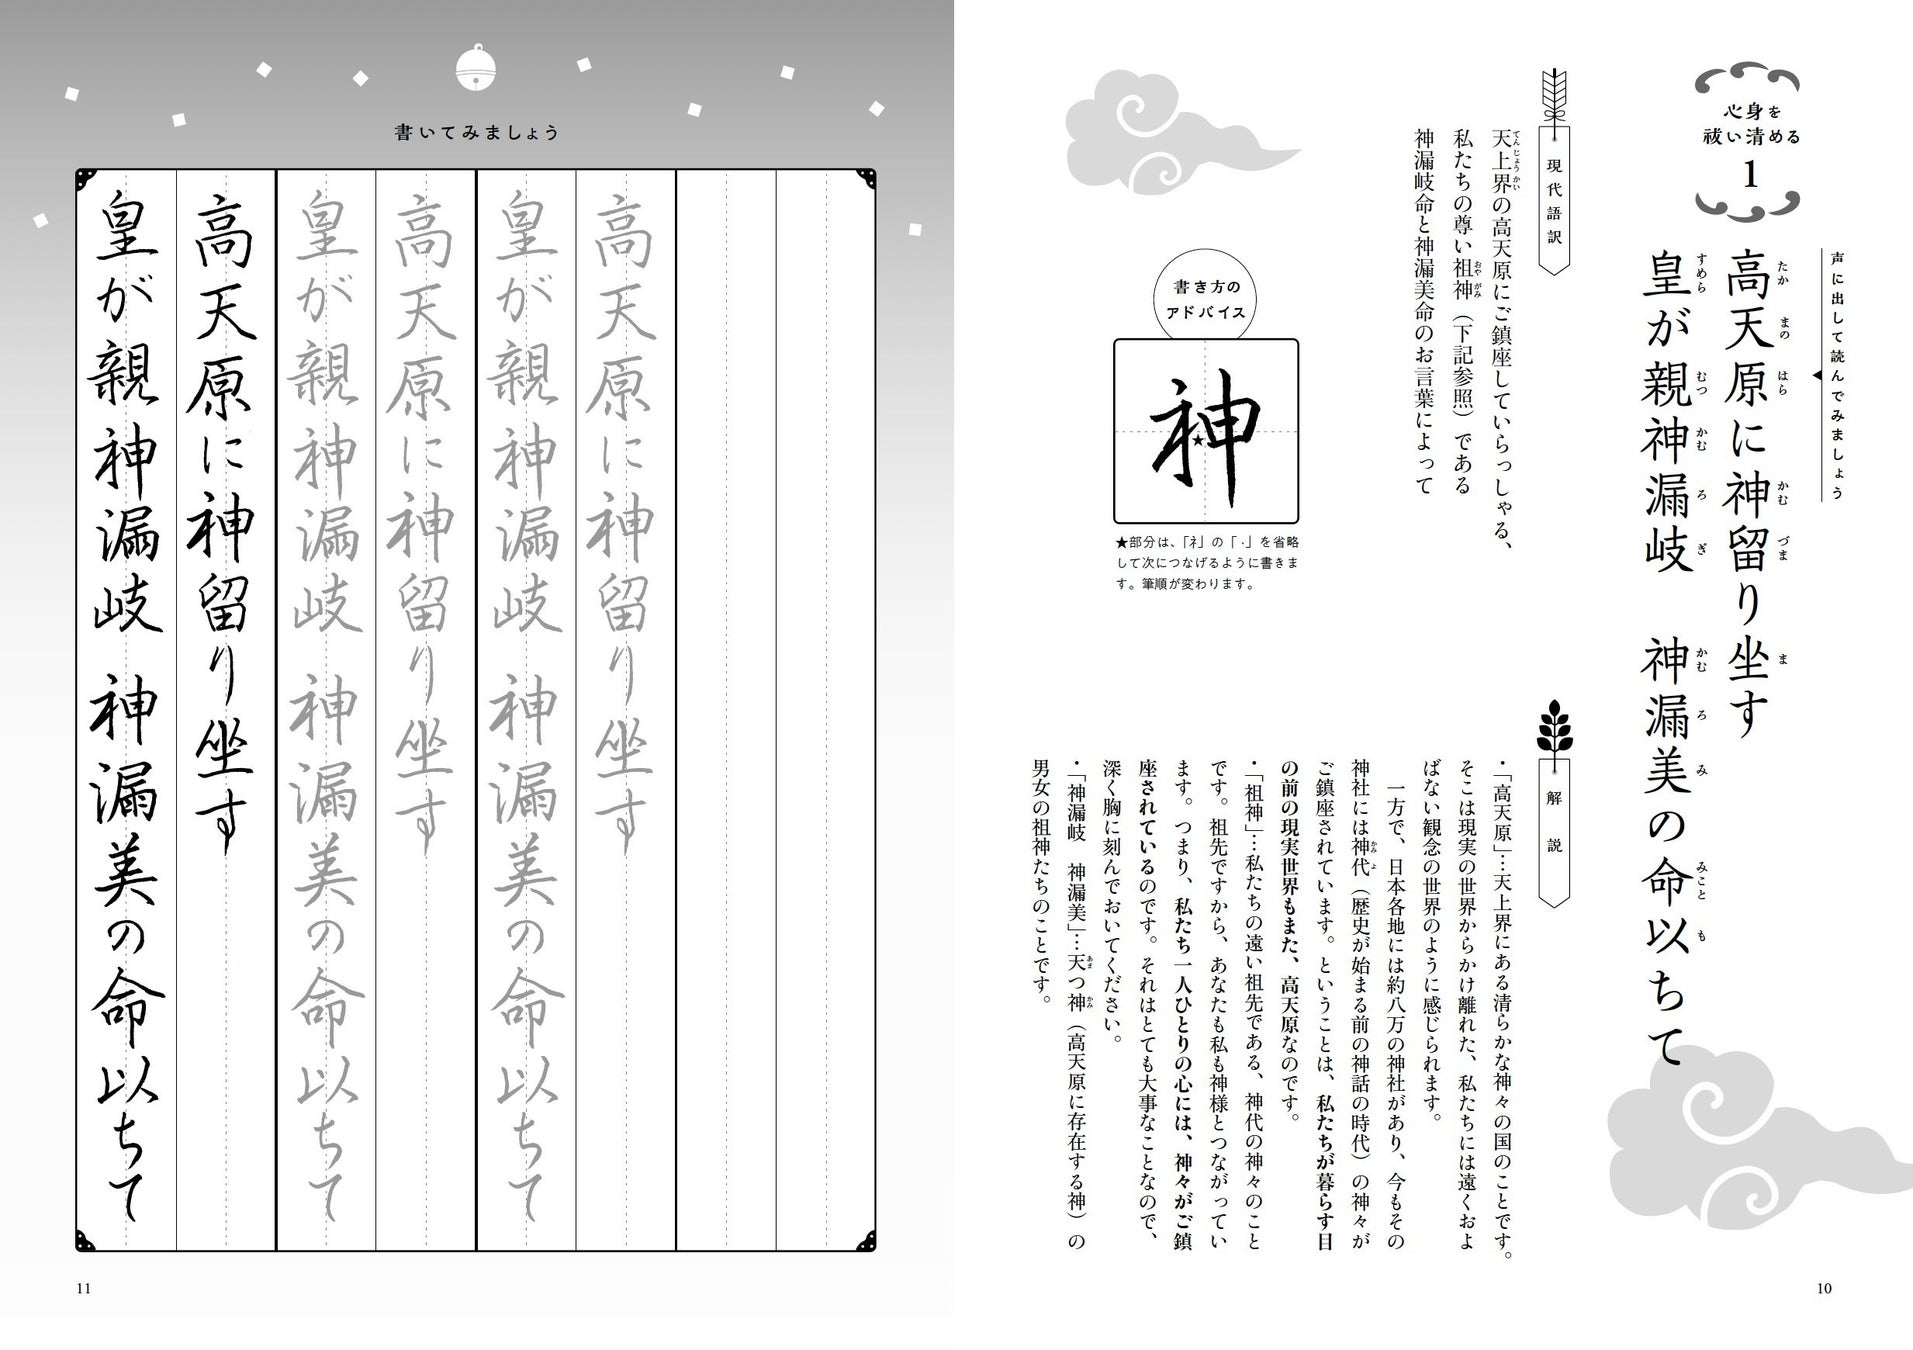 心身を
祓い清める
1
声に出して読んでみましょう
高天原に神留り坐す
たか まの はら かむ づま ま
皇が親神漏岐 神漏美の命以ちて
すめら むつ かむ ろ ぎ かむ ろ み みこと も
現代語訳
天上界の高天原にご鎮座していらっしゃる、
てんじょうかい
私たちの尊い祖神（下記参照）である
おやがみ
神漏岐命と神漏美命のお言葉によって
書き方の
アドバイス
神
★
★部分は、「ネ」の「・」を省略
して次につなげるように書きま
す。筆順が変わります。
解説
・「高天原」…天上界にある清らかな神々の国のことです。
そこは現実の世界からかけ離れた、私たちには遠くおよ
ばない観念の世界のように感じられます。
一方で、日本各地には約八万の神社があり、今もその
神社には神代（歴史が始まる前の神話の時代）の神々が
かみよ
ご鎮座されています。ということは、私たちが暮らす目
の前の現実世界もまた、高天原なのです。
・「祖神」…私たちの遠い祖先である、神代の神々のこと
です。祖先ですから、あなたも私も神様とつながってい
ます。つまり、私たち一人ひとりの心には、神々がご鎮
座されているのです。それはとても大事なことなので、
深く胸に刻んでおいてください。
・「神漏岐 神漏美」…天つ神（高天原に存在する神）の
あま かみ
男女の祖神たちのことです。
10
書いてみましょう
高天原に神留り坐す
皇が親神漏岐 神漏美の命以ちて
高天原に神留り坐す
皇が親神漏岐 神漏美の命以ちて
高天原に神留り坐す
皇が親神漏岐 神漏美の命以ちて
11